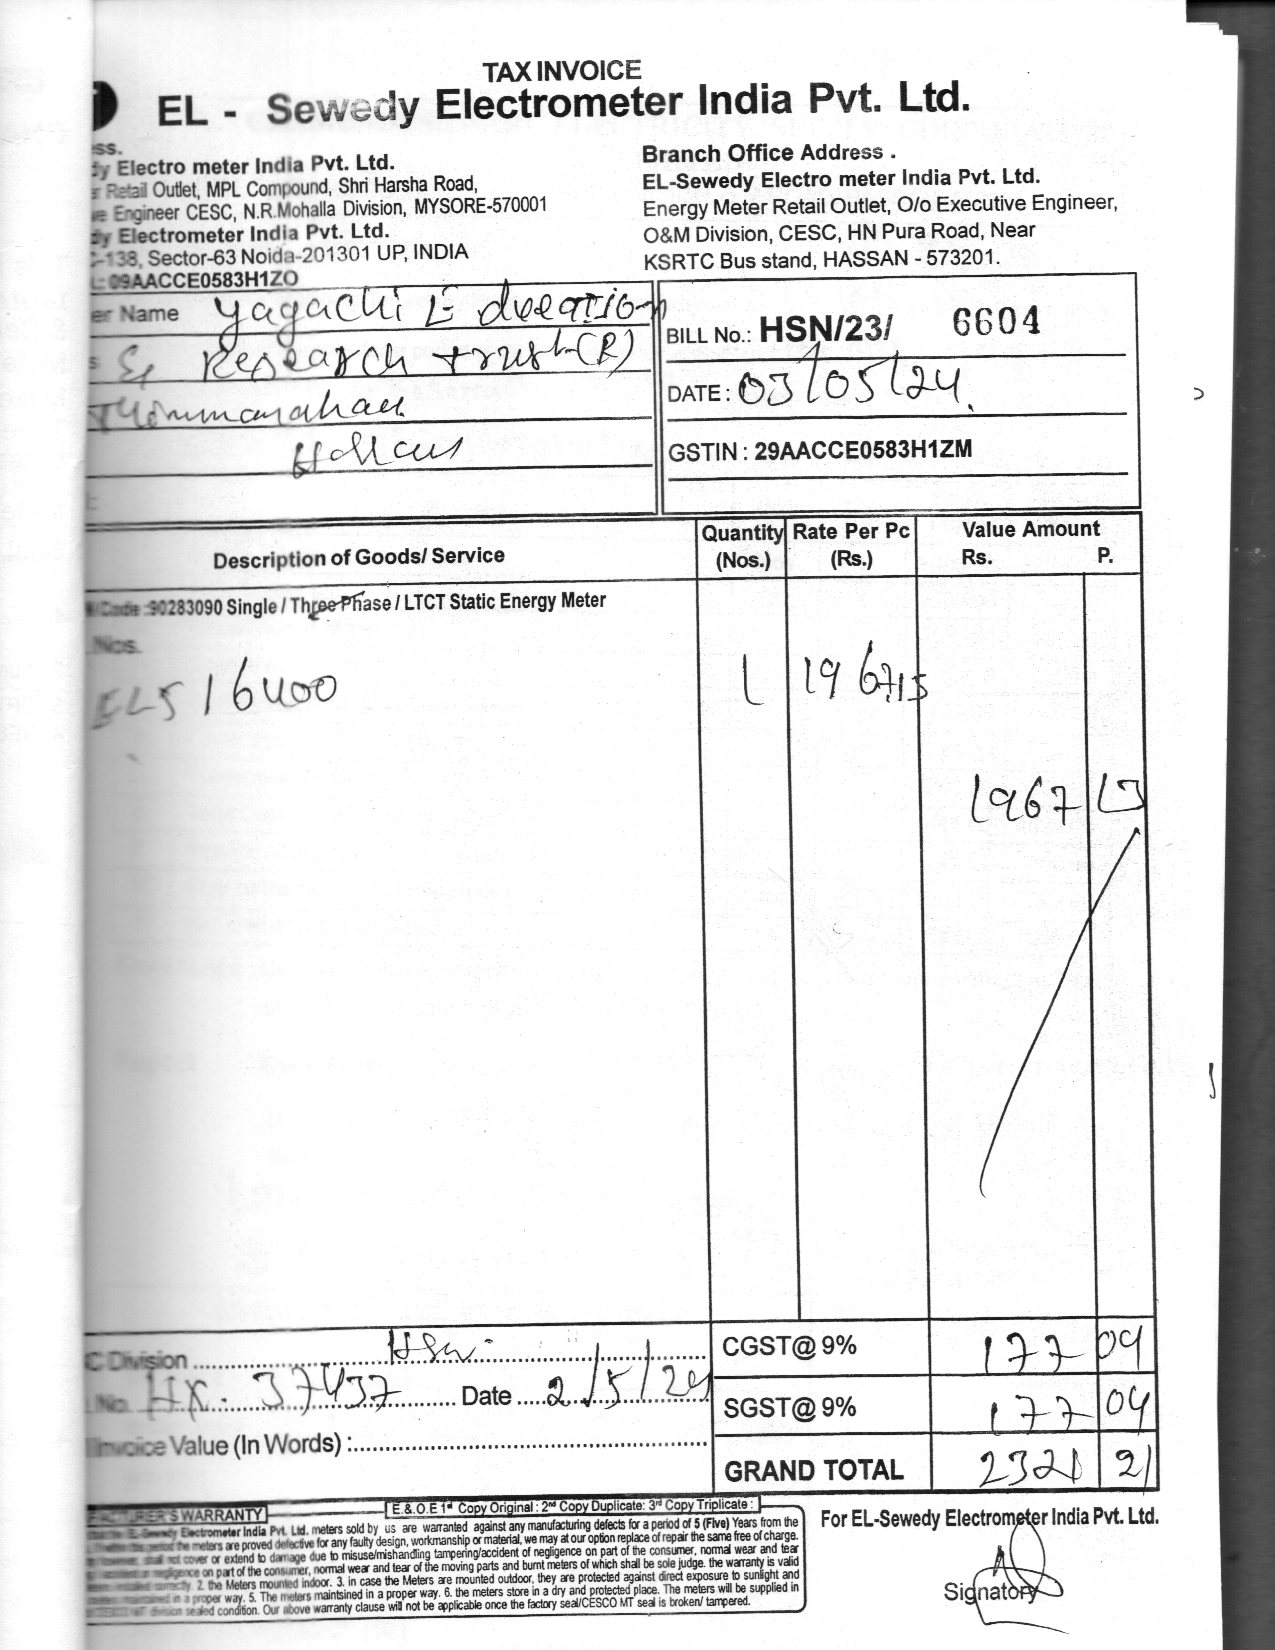 TAX INVOICE
EL - Sewedy Electrometer India Pvt. Ltd.
ss.
dy Electro meter India Pvt. Ltd.
r Retail Outlet, MPL Compound, Shri Harsha Road,
ve Engineer CESC, N.R.Mohalla Division, MYSORE-570001
dy Electrometer India Pvt. Ltd.
C-138, Sector-63 Noida-201301 UP, INDIA
: 09AACCE0583H1ZO
Branch Office Address .
EL-Sewedy Electro meter India Pvt. Ltd.
Energy Meter Retail Outlet, O/o Executive Engineer,
O&M Division, CESC, HN Pura Road, Near
KSRTC Bus stand, HASSAN - 573201.
er Name Yagachi Education
Research trust (R)
BILL No.: HSN/23/ 6604
DATE : 03/05/24.
GSTIN : 29AACCE0583H1ZM
Description of Goods/ Service
Quantity (Nos.)
Rate Per Pc (Rs.)
Value Amount
Rs. P.
Code :90283090 Single / Three Phase / LTCT Static Energy Meter
Nos.
ELS16400 1 1967.15
1967 15
C Division Hsn
No. HK. 37437 Date 2/5/24
CGST@ 9% 177 04
SGST@ 9% 177 04
Invoice Value (In Words) :
GRAND TOTAL 2321 21
E & O.E 1st Copy Original : 2nd Copy Duplicate: 3rd Copy Triplicate :
WARRANTY
Electrometer India Pvt. Ltd. meters sold by us are warranted against any manufacturing defects for a period of 5 (Five) Years from the
the meters are proved defective for any faulty design, workmanship or material, we may at our option replace of repair the same free of charge.
shall not cover or extend to damage due to misuse/mishandling tampering/accident of negligence on part of the consumer, normal wear and tear
negligence on part of the consumer, normal wear and tear of the moving parts and burnt meters of which shall be sole judge. the warranty is valid
2. the Meters mounted indoor. 3. in case the Meters are mounted outdoor, they are protected against direct exposure to sunlight and
in a proper way. 5. The meters maintsined in a proper way. 6. the meters store in a dry and protected place. The meters will be supplied in
sealed condition. Our above warranty clause will not be applicable once the factory seal/CESCO MT seal is broken/ tampered.
For EL-Sewedy Electrometer India Pvt. Ltd.
Signatory